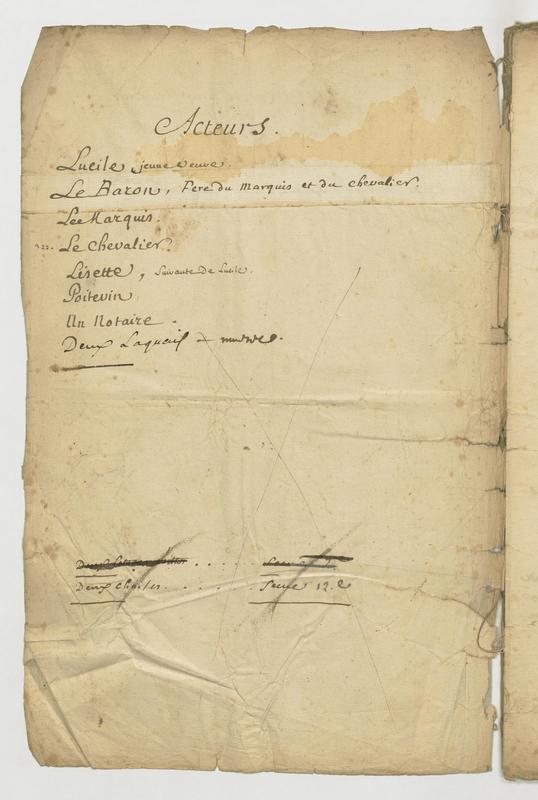 Acteurs.
Lucile jeune veuve.
Le Baron, Pere du Marquis et du Chevalier.
Le Marquis.
Le Chevalier.
Lisette, Suivante de Lucile.
Poitevin.
Un Notaire.
Deux Laquais
Deux ..... 
Deux ..... Scene 12.e